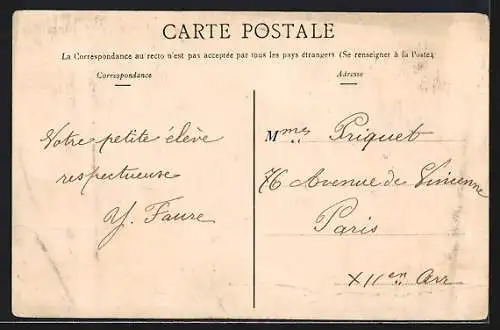 CARTE POSTALE
La Correspondance au recto n'est pas acceptée par tous les pays étrangers (Se renseigner à la Poste)
Correspondance
Adresse
Votre petite élève
respectueuse
Y. Faure
Mmes Priquet
76 Avenue de Vincenne
Paris
XIIen Arr